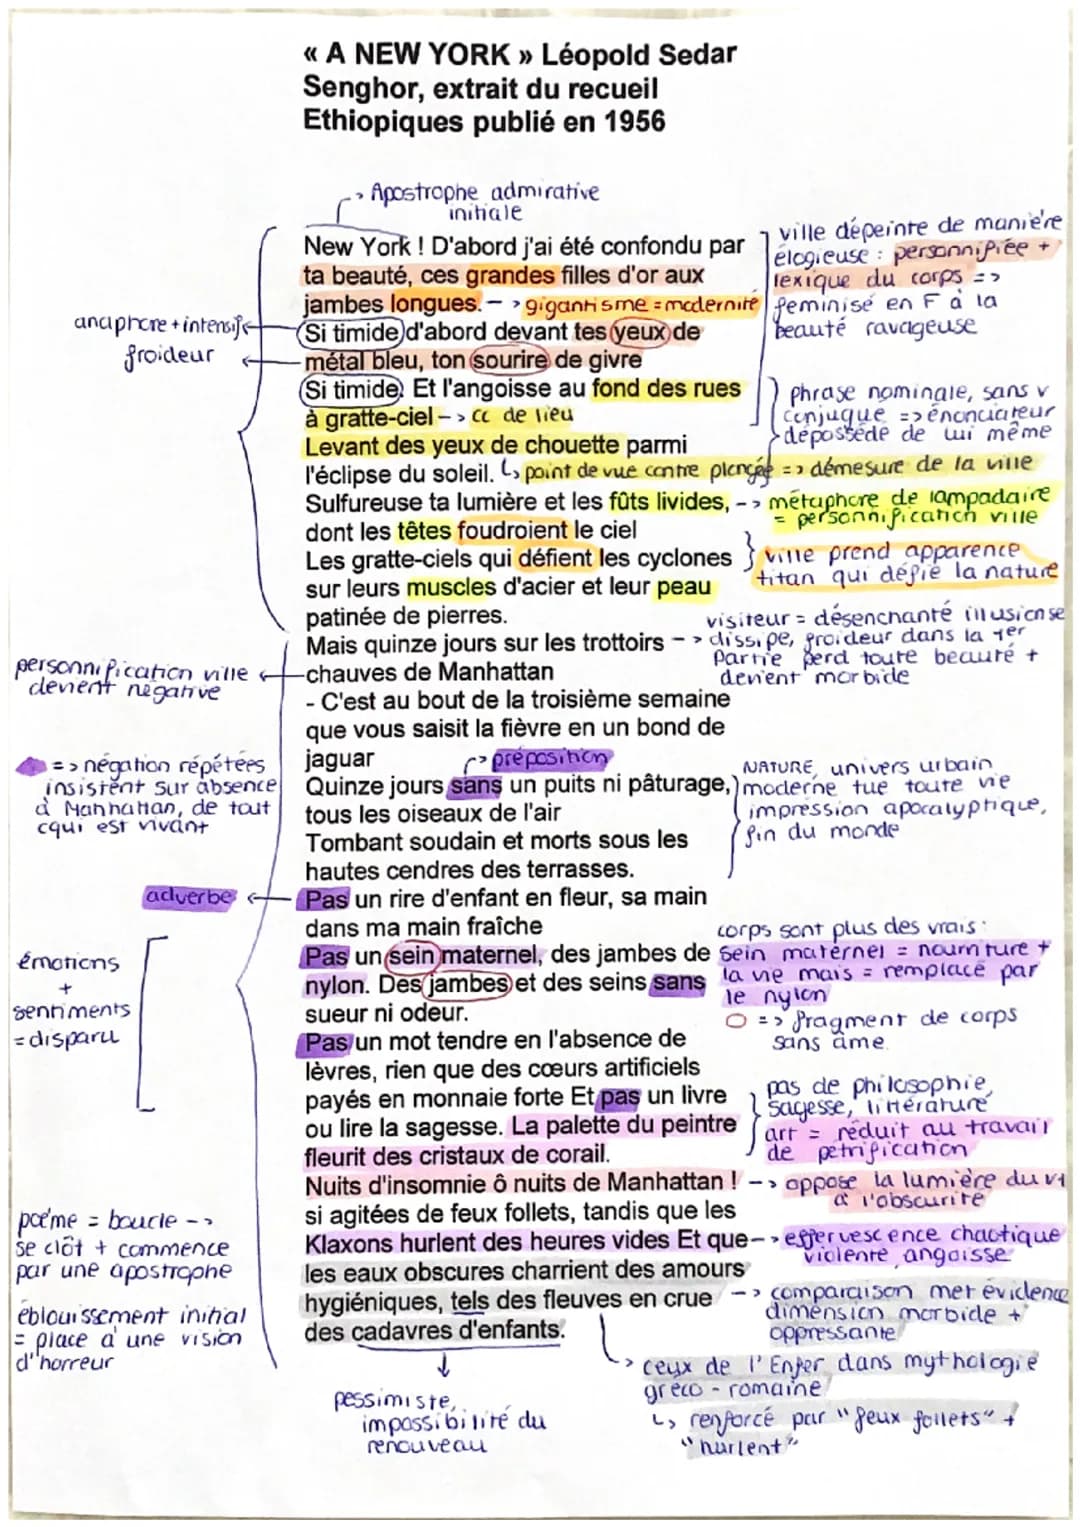 « A NEW YORK » Léopold Sedar
Senghor, extrait du recueil
Ethiopiques publié en 1956
-> Apostrophe admirative
initiale
New York ! D'abord j'ai été confondu par
ta beauté, ces grandes filles d'or aux
jambes longues. -> gigantisme = modernité
Si timide d'abord devant tes yeux de
métal bleu, ton sourire de givre
Si timide. Et l'angoisse au fond des rues
à gratte-ciel -> CC de lieu
Levant des yeux de chouette parmi
l'éclipse du soleil. ↳ point de vue contre plongée => démesure de la ville
Sulfureuse ta lumière et les fûts livides, -> métaphore de lampadaire
= personnification ville
dont les têtes foudroient le ciel
Les gratte-ciels qui défient les cyclones
sur leurs muscles d'acier et leur peau
patinée de pierres.
Mais quinze jours sur les trottoirs
chauves de Manhattan
- C'est au bout de la troisième semaine
que vous saisit la fièvre en un bond de
jaguar
-> préposition
Quinze jours sans un puits ni pâturage,
tous les oiseaux de l'air
Tombant soudain et morts sous les
hautes cendres des terrasses.
Pas un rire d'enfant en fleur, sa main
dans ma main fraîche
Pas un sein maternel, des jambes de
nylon. Des jambes et des seins sans
sueur ni odeur.
Pas un mot tendre en l'absence de
lèvres, rien que des cœurs artificiels
payés en monnaie forte Et pas un livre
ou lire la sagesse. La palette du peintre
fleurit des cristaux de corail.
Nuits d'insomnie ô nuits de Manhattan !
si agitées de feux follets, tandis que les
Klaxons hurlent des heures vides Et que
les eaux obscures charrient des amours
hygiéniques, tels des fleuves en crue
des cadavres d'enfants.
pessimiste,
impossibilité du
renouveau
anaphore + intensif
froideur
personnification ville
devient négative
=> négation répétées
insistent sur absence
à Manhattan, de tout
cqui est vivant
adverbe
émotions
+
sentiments
= disparu
poème = boucle ->
se clôt + commence
par une apostrophe
éblouissement initial
= place à une vision
d'horreur
ville dépeinte de manière
élogieuse : personnifiée +
lexique du corps =>
feminisé en F à la
beauté ravageuse
phrase nominale, sans v
conjugué => énonciateur
dépossédé de lui même
ville prend apparence
titan qui défie la nature
visiteur = désenchanté illusion se
-> dissipe, froideur dans la 1er
Partie perd toute beauté +
devient morbide
NATURE, univers urbain
moderne tue toute vie
impression apocalyptique,
fin du monde
corps sont plus des vrais :
sein maternel = nourriture +
la vie mais = remplacé par
le nylon
=> fragment de corps
sans âme
pas de philosophie,
sagesse, littérature
art = réduit au travail
de pétrification
-> oppose la lumière du v1
à l'obscurité
-> effervescence chaotique
violente, angoisse
-> comparaison met évidence
dimension morbide +
oppressante
-> ceux de l'Enfer dans mythologie
gréco-romaine
↳ renforcé par "feux follets" +
"hurlent"